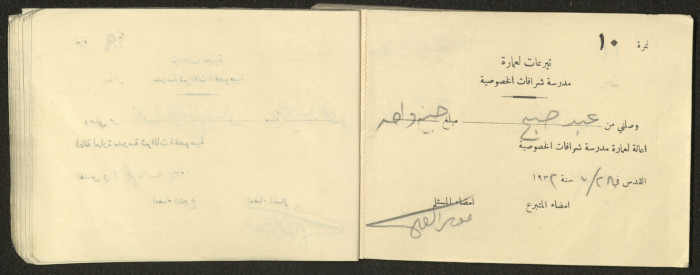 نمرة ١٠
تبرعات لعمارة
مدرسة شرافات الخصوصية
وصلني من عبد صبح مبلغ جنيه واحد
اعانة لعمارة مدرسة شرافات الخصوصية
القدس في ٢٨/ ٧ سنة ١٩٣٢
امضاء المتبرع امضاء المستلم